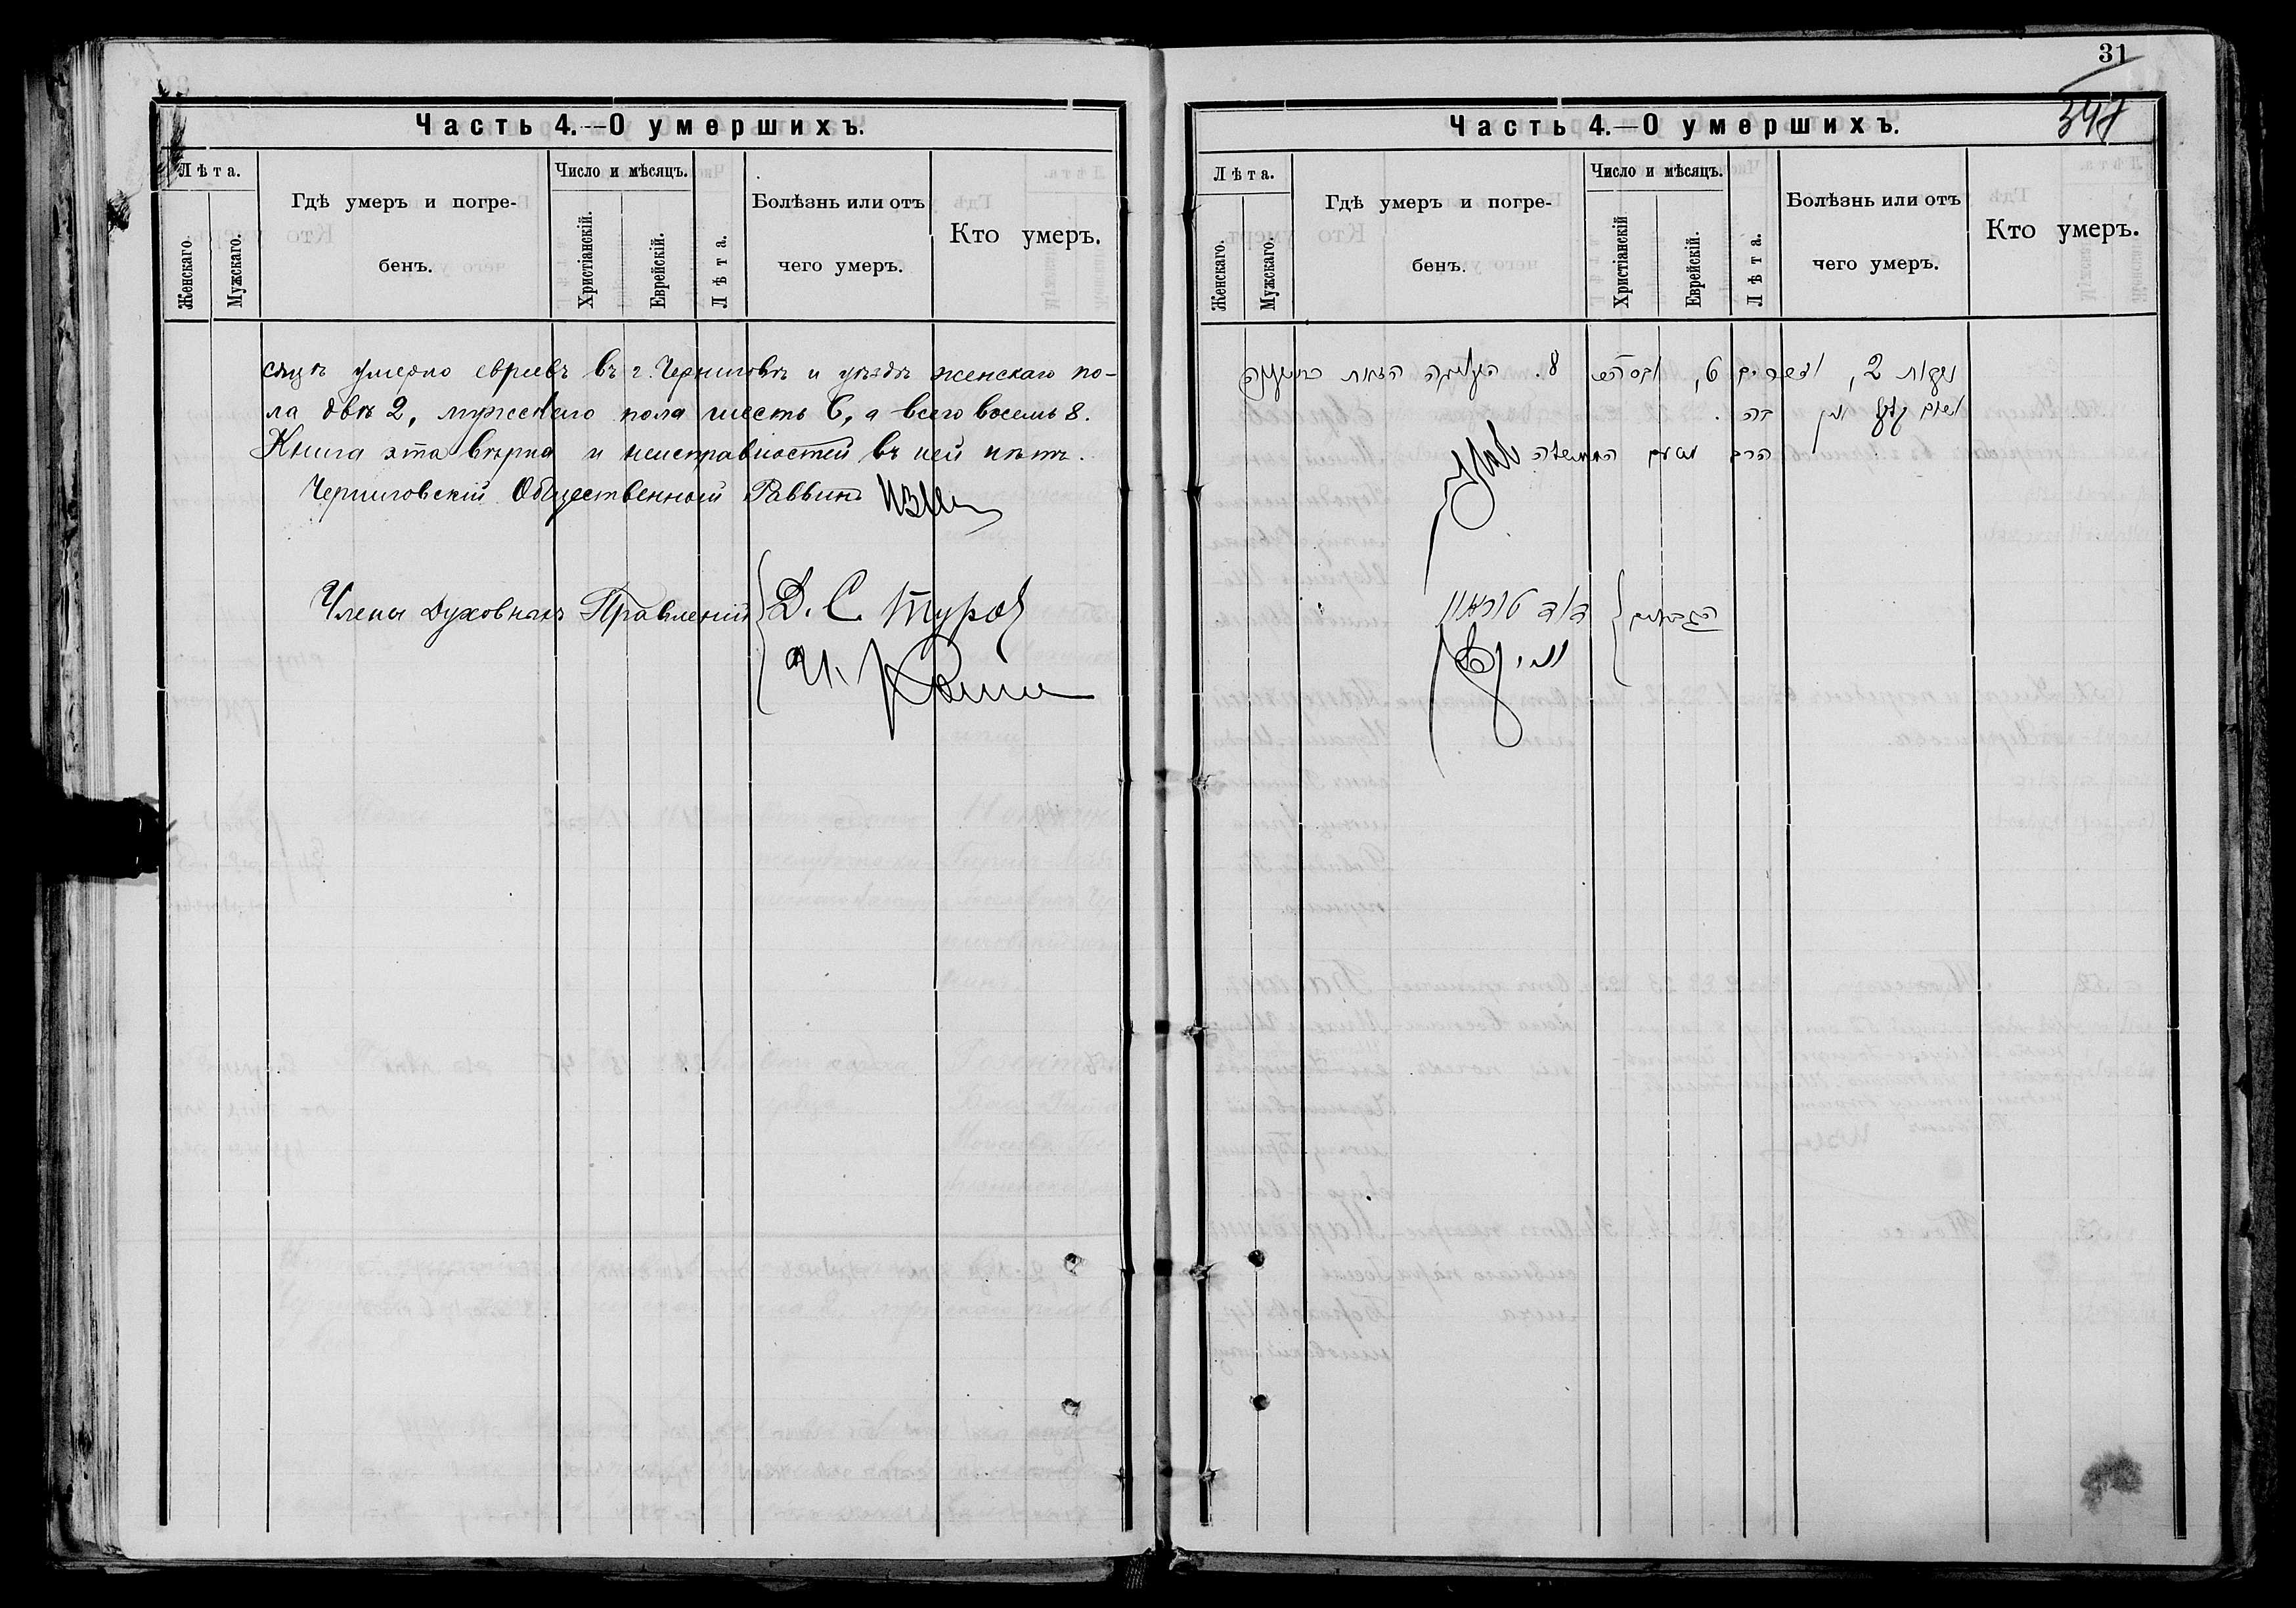 Часть 4.—О умершихъ.
Лѣта.
Женскаго.
Мужскаго.
Гдѣ умеръ и погре-
бенъ.
Число и мѣсяцъ.
Христіанскій.
Еврейскій.
Лѣта.
Болѣзнь или отъ
чего умеръ.
Кто умеръ.
сяцѣ умерло евреевъ въ г. Черниговѣ и уѣздѣ женскаго по-
ла двѣ 2, мужскаго пола шесть 6, а всего восемь 8.
Книга эта вѣрна и неисправностей въ ней нѣтъ.
Черниговскій Общественный Раввинъ
Члены Духовныхъ Правленій
Д. С. Туров
И.
31
347
Часть 4.—О умершихъ.
Лѣта.
Женскаго.
Мужскаго.
Гдѣ умеръ и погре-
бенъ.
Число и мѣсяцъ.
Христіанскій
Еврейскій.
Лѣта.
Болѣзнь или отъ
чего умеръ.
Кто умеръ.
נקבות 2, 6, 8. הזאת
בה.
הרב
דוד
הגבאים